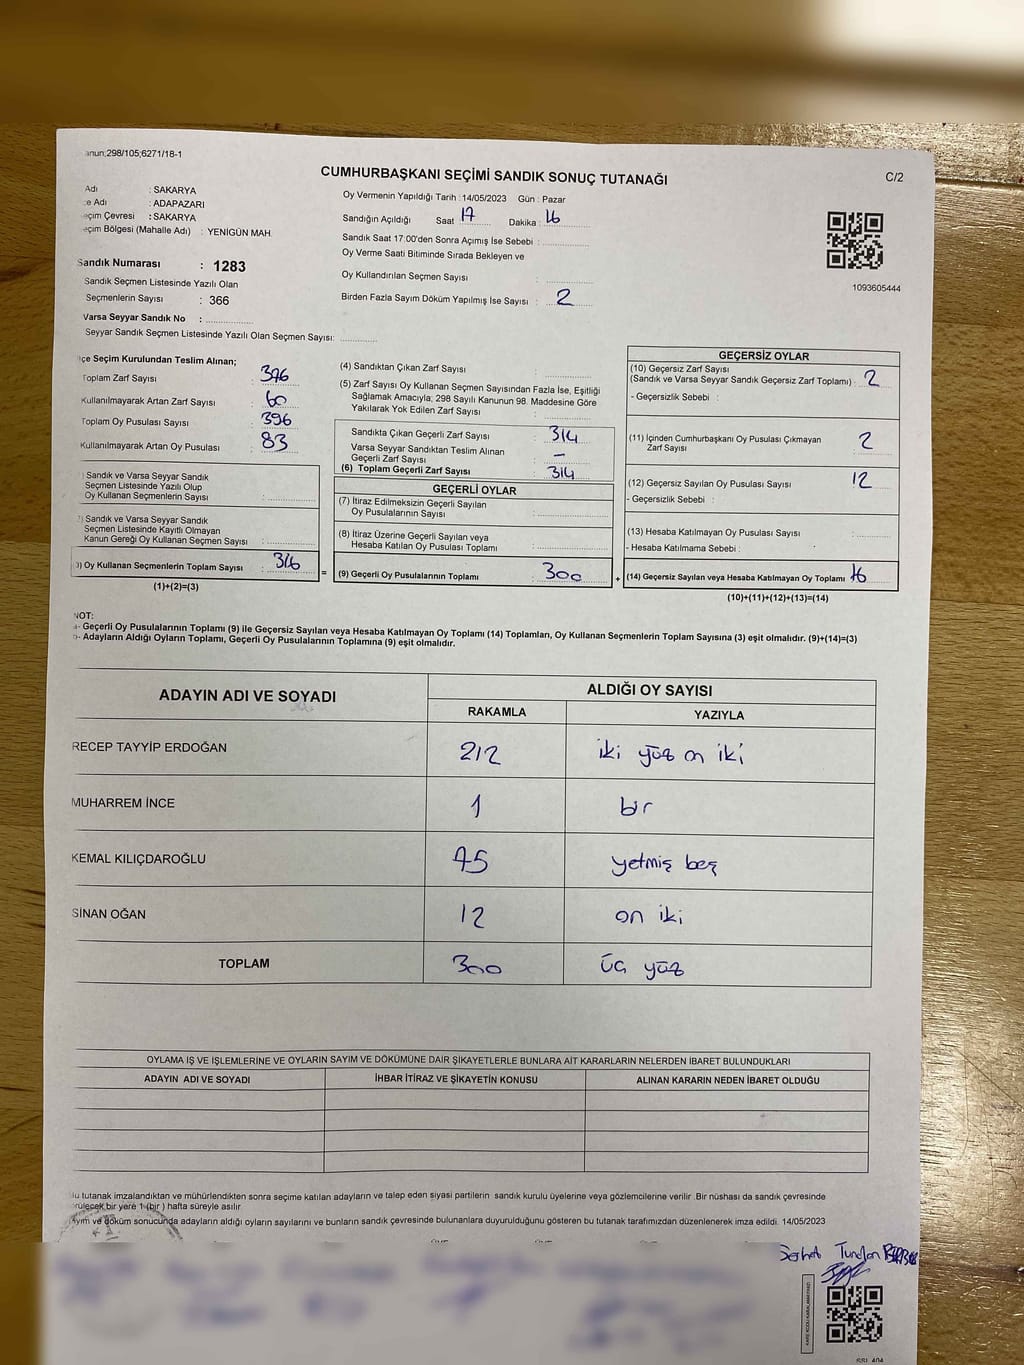 anun;298/105;6271/18-1
CUMHURBAŞKANI SEÇİMİ SANDIK SONUÇ TUTANAĞI
C/2
Adı : SAKARYA
e Adı : ADAPAZARI
eçim Çevresi : SAKARYA
eçim Bölgesi (Mahalle Adı) : YENİGÜN MAH.
Sandık Numarası : 1283
Sandık Seçmen Listesinde Yazılı Olan
Seçmenlerin Sayısı : 366
Varsa Seyyar Sandık No :
Seyyar Sandık Seçmen Listesinde Yazılı Olan Seçmen Sayısı:
Oy Vermenin Yapıldığı Tarih : 14/05/2023 Gün : Pazar
Sandığın Açıldığı Saat : 17 Dakika : 16
Sandık Saat 17:00'den Sonra Açımış İse Sebebi :
Oy Verme Saati Bitiminde Sırada Bekleyen ve
Oy Kullandırılan Seçmen Sayısı :
Birden Fazla Sayım Döküm Yapılmış İse Sayısı : 2
1093605444
çe Seçim Kurulundan Teslim Alınan;
Toplam Zarf Sayısı : 396
Kullanılmayarak Artan Zarf Sayısı : 60
Toplam Oy Pusulası Sayısı : 396
Kullanılmayarak Artan Oy Pusulası : 83
) Sandık ve Varsa Seyyar Sandık
Seçmen Listesinde Yazılı Olup
Oy Kullanan Seçmenlerin Sayısı :
) Sandık ve Varsa Seyyar Sandık
Seçmen Listesinde Kayıtlı Olmayan
Kanun Gereği Oy Kullanan Seçmen Sayısı :
3) Oy Kullanan Seçmenlerin Toplam Sayısı : 316
(1)+(2)=(3)
(4) Sandıktan Çıkan Zarf Sayısı :
(5) Zarf Sayısı Oy Kullanan Seçmen Sayısından Fazla İse, Eşitliği
Sağlamak Amacıyla; 298 Sayılı Kanunun 98. Maddesine Göre
Yakılarak Yok Edilen Zarf Sayısı :
Sandıkta Çıkan Geçerli Zarf Sayısı : 314
Varsa Seyyar Sandıktan Teslim Alınan
Geçerli Zarf Sayısı : –
(6) Toplam Geçerli Zarf Sayısı : 314
GEÇERLİ OYLAR
(7) İtiraz Edilmeksizin Geçerli Sayılan
Oy Pusulalarının Sayısı :
(8) İtiraz Üzerine Geçerli Sayılan veya
Hesaba Katılan Oy Pusulası Toplamı :
= (9) Geçerli Oy Pusulalarının Toplamı : 300
GEÇERSİZ OYLAR
(10) Geçersiz Zarf Sayısı
(Sandık ve Varsa Seyyar Sandık Geçersiz Zarf Toplamı) : 2
- Geçersizlik Sebebi :
(11) İçinden Cumhurbaşkanı Oy Pusulası Çıkmayan
Zarf Sayısı : 2
(12) Geçersiz Sayılan Oy Pusulası Sayısı : 12
- Geçersizlik Sebebi :
(13) Hesaba Katılmayan Oy Pusulası Sayısı :
- Hesaba Katılmama Sebebi :
+ (14) Geçersiz Sayılan veya Hesaba Katılmayan Oy Toplamı : 16
(10)+(11)+(12)+(13)=(14)
NOT:
a- Geçerli Oy Pusulalarının Toplamı (9) ile Geçersiz Sayılan veya Hesaba Katılmayan Oy Toplamı (14) Toplamları, Oy Kullanan Seçmenlerin Toplam Sayısına (3) eşit olmalıdır. (9)+(14)=(3)
b- Adayların Aldığı Oyların Toplamı, Geçerli Oy Pusulalarının Toplamına (9) eşit olmalıdır.
ADAYIN ADI VE SOYADI ALDIĞI OY SAYISI
RAKAMLA YAZIYLA
RECEP TAYYİP ERDOĞAN 212 iki yüz on iki
MUHARREM İNCE 1 bir
KEMAL KILIÇDAROĞLU 75 yetmiş beş
SİNAN OĞAN 12 on iki
TOPLAM 300 üç yüz
OYLAMA İŞ VE İŞLEMLERİNE VE OYLARIN SAYIM VE DÖKÜMÜNE DAİR ŞİKAYETLERLE BUNLARA AİT KARARLARIN NELERDEN İBARET BULUNDUKLARI
ADAYIN ADI VE SOYADI İHBAR İTİRAZ VE ŞİKAYETİN KONUSU ALINAN KARARIN NEDEN İBARET OLDUĞU
u tutanak imzalandıktan ve mühürlendikten sonra seçime katılan adayların ve talep eden siyasi partilerin sandık kurulu üyelerine veya gözlemcilerine verilir .Bir nüshası da sandık çevresinde
rülecek bir yere 1 (bir ) hafta süreyle asılır
ayım ve döküm sonucunda adayların aldığı oyların sayılarını ve bunların sandık çevresinde bulunanlara duyurulduğunu gösteren bu tutanak tarafımızdan düzenlenerek imza edildi. 14/05/2023